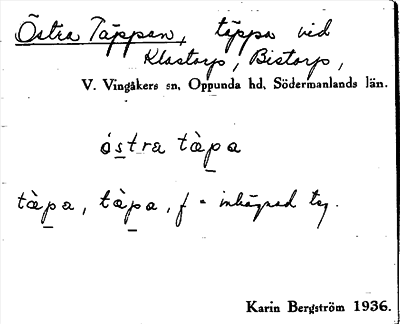 Östra Täppan, täppa vid
Klastorp, Bistorp,
V. Vingåkers sn, Oppunda hd, Södermanlands län.
östra tàpa
tàpa, tàpa, f = inhägnad teg.
Karin Bergström 1936.